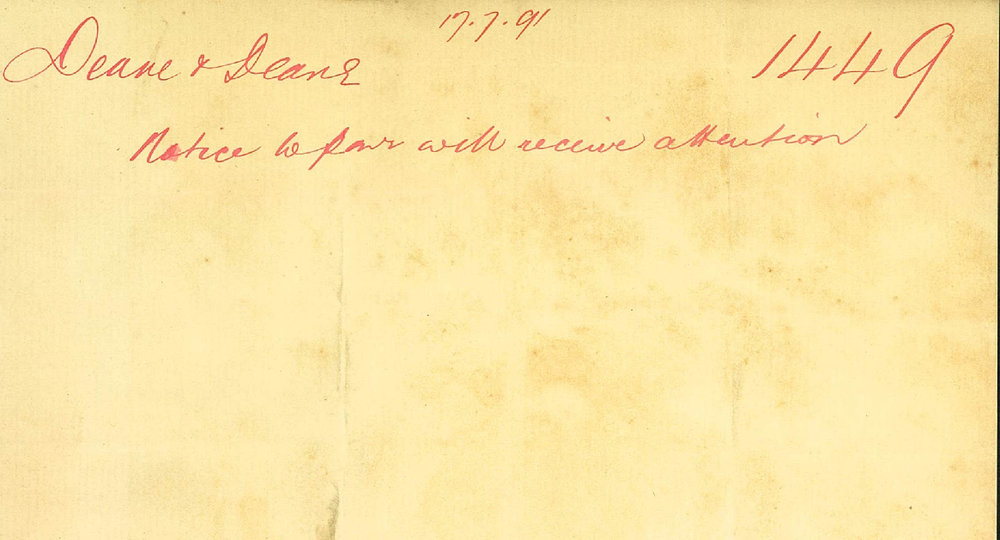 17.7.91
Deane & Deane
1449
Notice to pave will receive attention